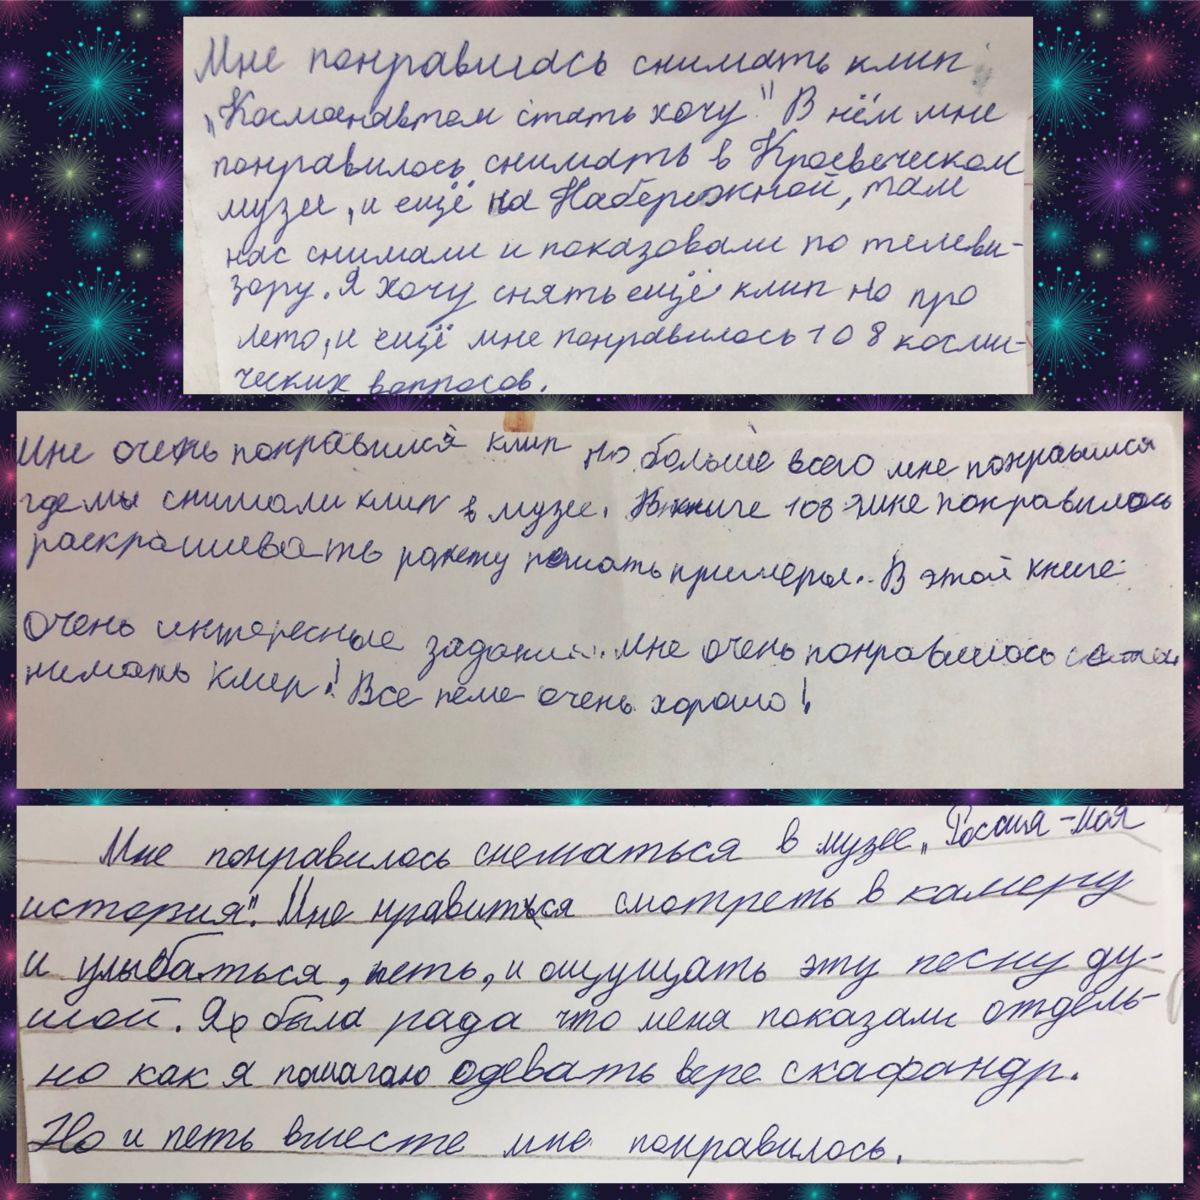 Мне понравилась снимать клип
„Космонавтом стать хочу." В нём мне
понравилось снимать в Кроевеческом
музее, и ещё на Набережной, там
нас снимали и показовали по телеви-
зору. Я хочу снять ещё клип но про
лето, и ещё мне понравилось 108 косми-
ческих вопросов.
Мне очень понравился клип но больше всего мне понравился
где мы снимали клип в музее. В книге 108 мне понравилось
раскрашевать ракету примеры.. В этой книге
очень интересные задании. Мне очень понравилось
нимать клип! Все пели очень хорошо!
Мне понравилось снематься в музее „Россия-моя
история". Мне нравиться смотреть в камеру
и улыбаться, петь, и ощущать эту песню ду-
шой. Я была рада что меня показали отдель-
но как я помагаю одевать вере скафандр.
Но и петь вместе мне понравилось.